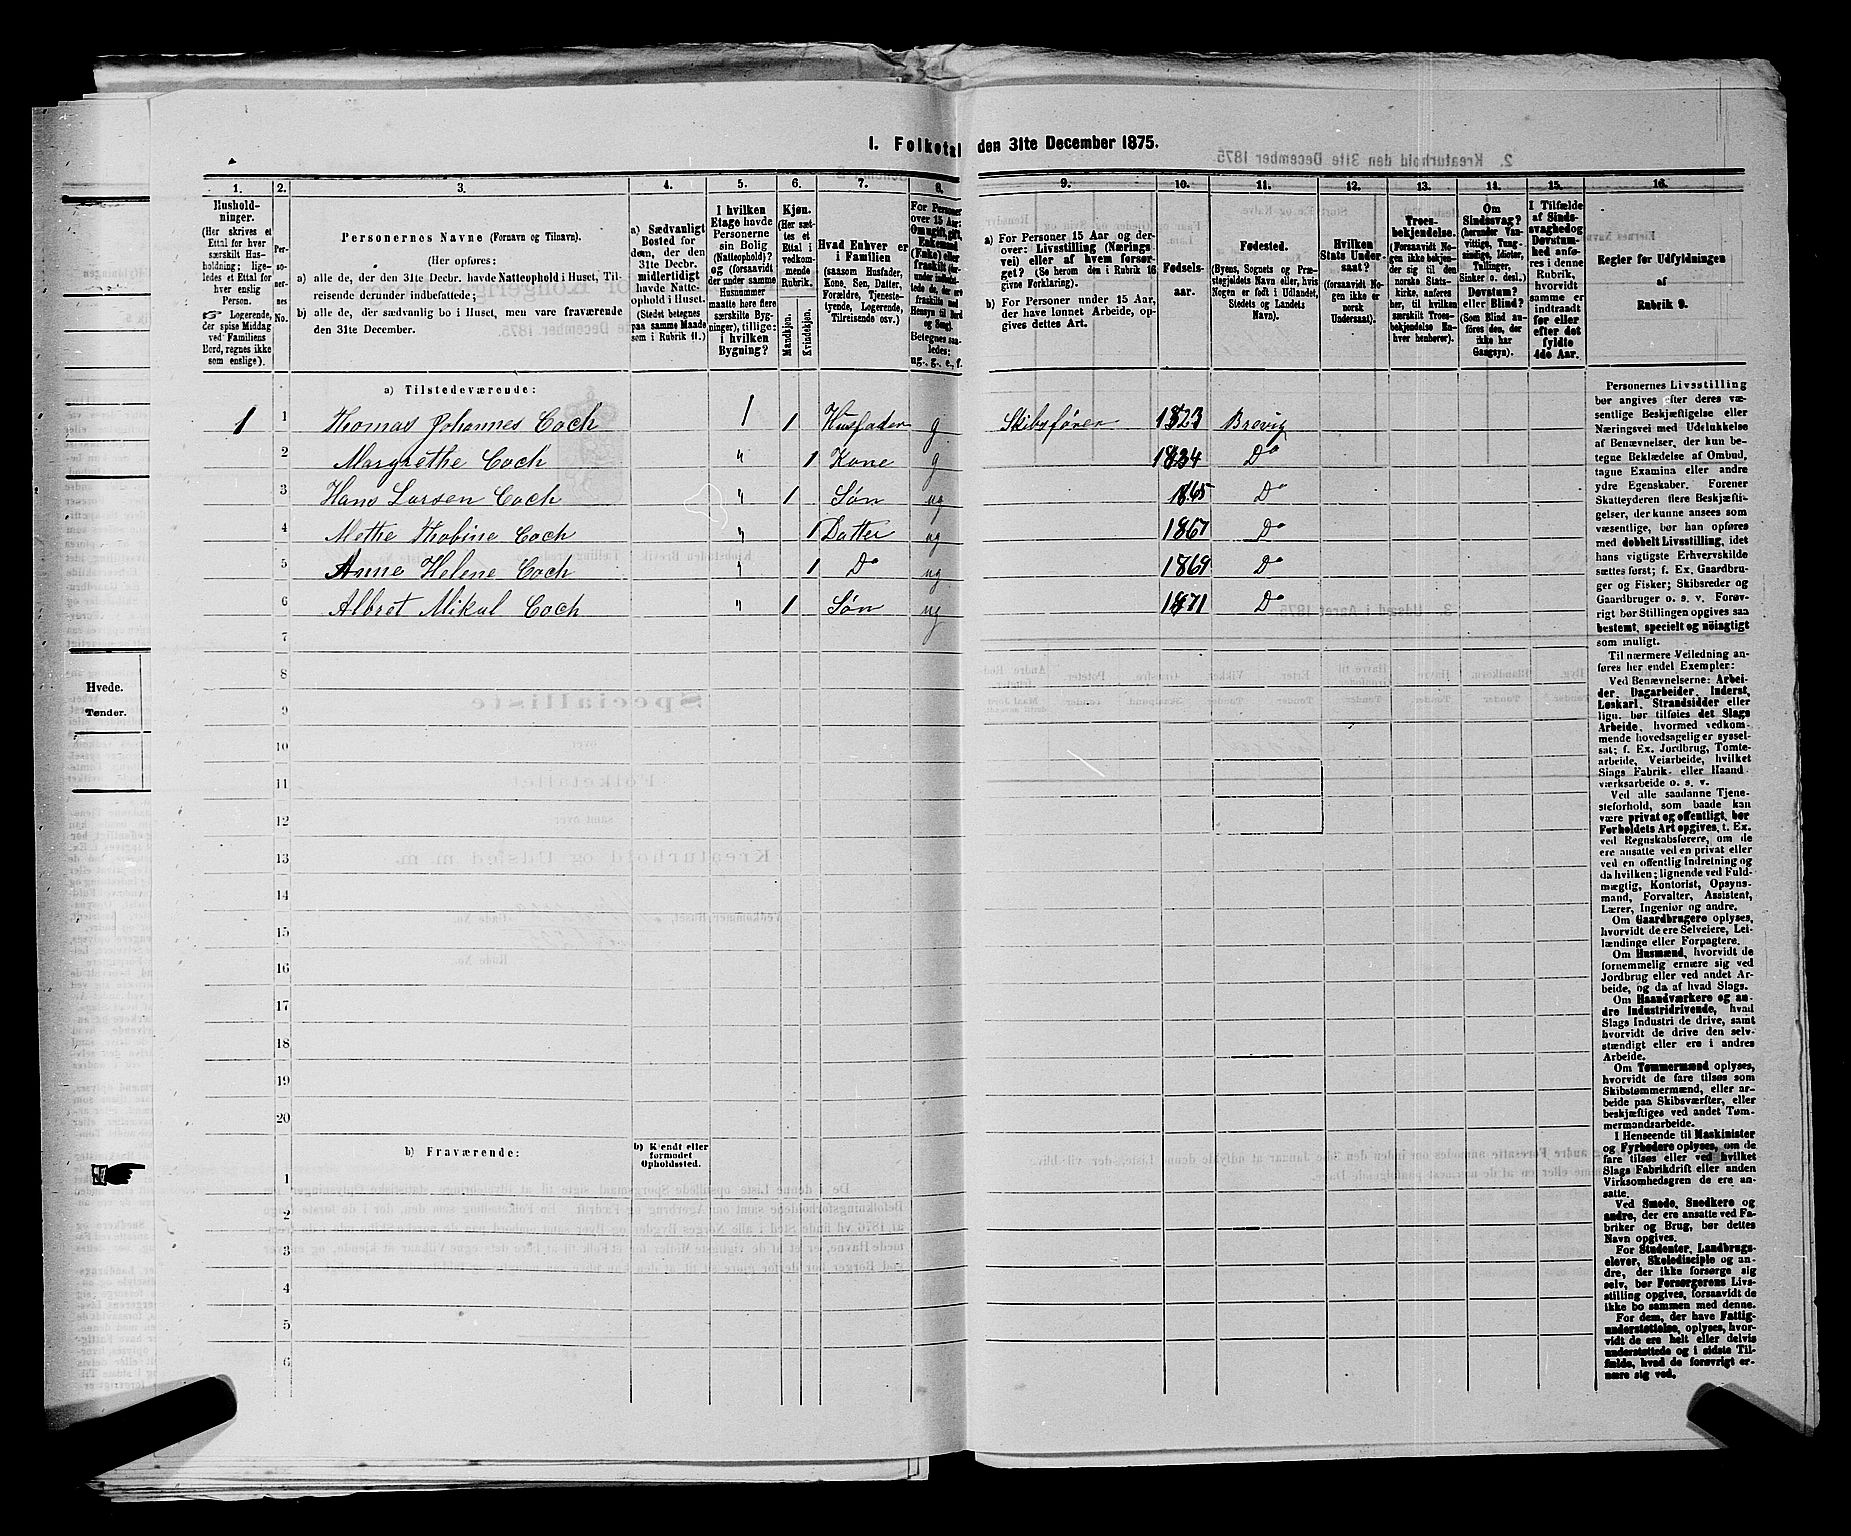 1. Folketal den 31te December 1875.
1. 2. 3. 4. 5. 6. 7. 8. 9. 10. 11. 12. 13. 14. 15. 16.
Hushold-
ninger.
(Her skrives et
Ettal for hver
særskilt Hus-
holdning; lige-
ledes et Ettal for
hver enslig
Person.
Logerende,
der spise Middag
ved Familiens
Bord, regnes ikke
som enslige).
Per-
so-
ner-
nes
No.
Personernes Navne (Fornavn og Tilnavn).
(Her opføres:
a) alle de, der den 31te Decbr. havde Natteophold i Huset, Til-
reisende derunder indbefattede;
b) alle de, der sædvanlig bo i Huset, men vare fraværende
den 31te December.
a) Sædvanligt
Bosted for
dem, der den
31te Decbr.
midlertidigt
havde Natte-
ophold i Huset.
(Stedet betegnes
paa samme Maade
som i Rubrik 11.)
I hvilken
Etage havde
Personerne
sin Bolig
(Natteophold)?
og (forsaavidt
der under samme
Husnummer
maatte høre flere
særskilte Byg-
ninger), tillige:
i hvilken
Bygning?
Kjøn.
(Her sæt-
tes et
Ettal i
vedkom-
mende
Rubrik.
Mandkjøn.
Kvindekjøn.
Hvad Enhver er
i Familien
(saasom Husfader,
Kone, Søn, Datter,
Forældre, Tjeneste-
tyende, Logerende,
Tilreisende osv.)
For Personer
over 15 Aar:
Om ugift, gift,
Enkemand
(Enke) eller
fraskilt
Betegnes saa-
ledes:
ug., g., e., f.
a) For Personer 15 Aar og der-
over: Livsstilling (Nærings-
vei) eller af hvem forsør-
get? (Se herom den i Rubrik 16
givne Forklaring).
b) For Personer under 15 Aar,
der have lønnet Arbeide, op-
gives dettes Art.
Fødsels-
aar.
Fødested.
(Byens, Sognets og Præ-
stegjeldets Navn eller, hvis
Nogen er født i Udlandet,
Stedets og Landets
Navn).
Hvilken
Stats Under-
saat?
(forsaavidt No-
gen ikke er
norsk
Undersaat).
Troes-
bekjendelse.
(Forsaavidt No-
gen ikke bekjen-
der sig til den
norske Stats-
kirke, anføres
her, til hvilken
særskilt Troes-
bekjendelse En-
hver henhører).
Om
Sindssvag?
(herunder Van-
vittige, Tung-
sindige, Idioter,
Tullinger,
Sinker o. desl.)
Døvstum?
eller Blind?
(Som Blind an-
føres den, der
ikke har
Gangsyn).
I Tilfælde
af Sinds-
svaghed og
Døvstum-
hed anfø-
res i denne
Rubrik,
hvorvidt
samme er
indtraadt
før eller
efter det
fyldte
4de Aar.
Regler for Udfyldningen
af
Rubrik 9.
a) Tilstedeværende:
1 1 Thomas Johannes Coch 1 1 Husfader g Skibsfører 1823 Brevig
2 Margrethe Coch " 1 Kone g 1834 Do
3 Hans Larsen Coch " 1 Søn ug 1865 Do
4 Methe Thobine Coch " 1 Datter ug 1867 Do
5 Anne Helene Coch " 1 Do ug 1869 Do
6 Albret Mikal Coch " 1 Søn ug 1871 Do
7
8
9
10
11
12
13
14
15
16
17
18
19
20
b) Fraværende:
b) Kjendt eller
formodet
Opholdssted.
1
2
3
4
5
6
Personernes Livsstilling
bør angives efter deres væ-
sentlige Beskjæftigelse eller
Næringsvei med Udelukkelse
af Benævnelser, der kun be-
tegne Beklædelse af Ombud,
tagne Examina eller andre
ydre Egenskaber. Forener
Skatteyderen flere Beskjæfti-
gelser, der kunne ansees som
væsentlige, bør han opføres
med dobbelt Livsstilling, idet
hans vigtigste Erhvervskilde
sættes først; f. Ex. Gaardbru-
ger og Fisker; Skibsreder og
Gaardbruger o. s. v. Forøv-
rigt bør Stillingen opgives saa
bestemt, specielt og nöiagtigt
som muligt.
Til nærmere Veiledning an-
føres her endel Exempler:
Ved Benævnelserne: Arbei-
der, Dagarbeider, Inderst,
Løskarl, Strandsidder eller
lign. bør tilføies det Slags
Arbeide, hvormed vedkom-
mende hovedsagelig er syssel-
sat; f. Ex. Jordbrug, Tomte-
arbeide, Veiarbeide, hvilket
Slags Fabrik- eller Haand-
værksarbeide o. s. v.
Ved alle saadanne Tjene-
steforhold, som baade kan
være privat og offentligt, bør
Forholdets Art opgives, t. Ex.
ved Regnskabsførere, om de
ere ansatte ved en privat eller
ved en offentlig Indretning og
da hvilken; lignende ved Fuld-
mægtig, Kontorist, Opsyns-
mand, Forvalter, Assistent,
Lærer, Ingeniør og andre.
Om Gaardbrugere oplyses,
hvorvidt de ere Selveiere, Lei-
lændinge eller Forpagtere.
Om Husmænd, hvorvidt de
fornemmelig ernære sig ved
Jordbrug eller ved andet Ar-
beide, og da af hvad Slags.
Om Haandværkere og an-
dre Industridrivende, hvad
Slags Industri de drive, samt
hvorvidt de drive den selv-
stændigt eller ere i andres
Arbeide.
Om Tømmermænd oplyses,
hvorvidt de fare tilsøs som
Skibstømmermænd, eller ar-
beide paa Skibsværfter, eller
beskjæftiges ved andet Tøm-
mermandsarbeide.
I Henseende til Maskinister
og Fyrbødere oplyses, om de
fare tilsøs eller ved hvilket
Slags Fabrikdrift eller anden
Virksomhedsgren de ere an-
satte.
Ved Smede, Snedkere og
andre, der ere ansatte ved Fa-
briker og Brug, bør dettes
Navn opgives.
For Studenter, Landbrugs-
elever, Skoledisciple og an-
dre, der ikke forsørge sig
selv, bør Forsørgerens Livs-
stilling opgives, forsaavidt de
ikke bo sammen med denne.
For dem, der have Fattig-
understøttelse, oplyses, hvor-
vidt de ere helt eller delvis
understøttede og i sidste Til-
fælde, hvad de forøvrigt er-
nære sig ved.
Hvede.
Tønder.